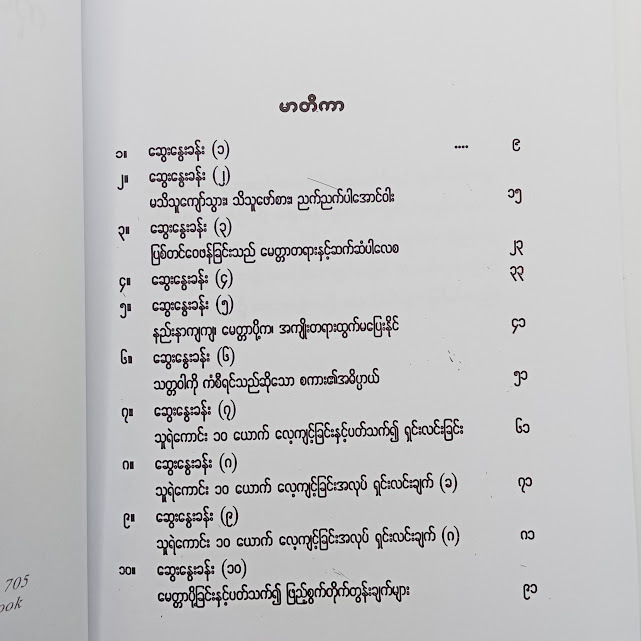 မာတိကာ
၁။ ဆွေးနွေးခန်း (၁) .... ၉
၂။ ဆွေးနွေးခန်း (၂)
မသိသူကျော်သွား၊ သိသူဖော်စား၊ ညက်ညက်ပါအောင်ဝါး ၁၅
၃။ ဆွေးနွေးခန်း (၃)
ပြစ်တင်ဝေဖန်ခြင်းသည် မေတ္တာတရားနှင့်ဆက်ဆံပါလေစ ၂၃
၄။ ဆွေးနွေးခန်း (၄) ၃၃
၅။ ဆွေးနွေးခန်း (၅)
နည်းနာကျကျ၊ မေတ္တာပို့က၊ အကျိုးတရားထွက်မပြေးနိုင် ၄၁
၆။ ဆွေးနွေးခန်း (၆)
သတ္တဝါကို ကံစီရင်သည်ဆိုသော စကား၏အဓိပ္ပာယ် ၅၁
၇။ ဆွေးနွေးခန်း (၇)
သူရဲကောင်း ၁၀ ယောက် လေ့ကျင့်ခြင်းနှင့်ပတ်သက်၍ ရှင်းလင်းခြင်း ၆၁
၈။ ဆွေးနွေးခန်း (၈)
သူရဲကောင်း ၁၀ ယောက် လေ့ကျင့်ခြင်းအလုပ် ရှင်းလင်းချက် (ခ) ၇၁
၉။ ဆွေးနွေးခန်း (၉)
သူရဲကောင်း ၁၀ ယောက် လေ့ကျင့်ခြင်းအလုပ် ရှင်းလင်းချက် (ဂ) ၈၁
၁၀။ ဆွေးနွေးခန်း (၁၀)
မေတ္တာပို့ခြင်းနှင့်ပတ်သက်၍ ဖြည့်စွက်တိုက်တွန်းချက်များ ၉၁
705
ook